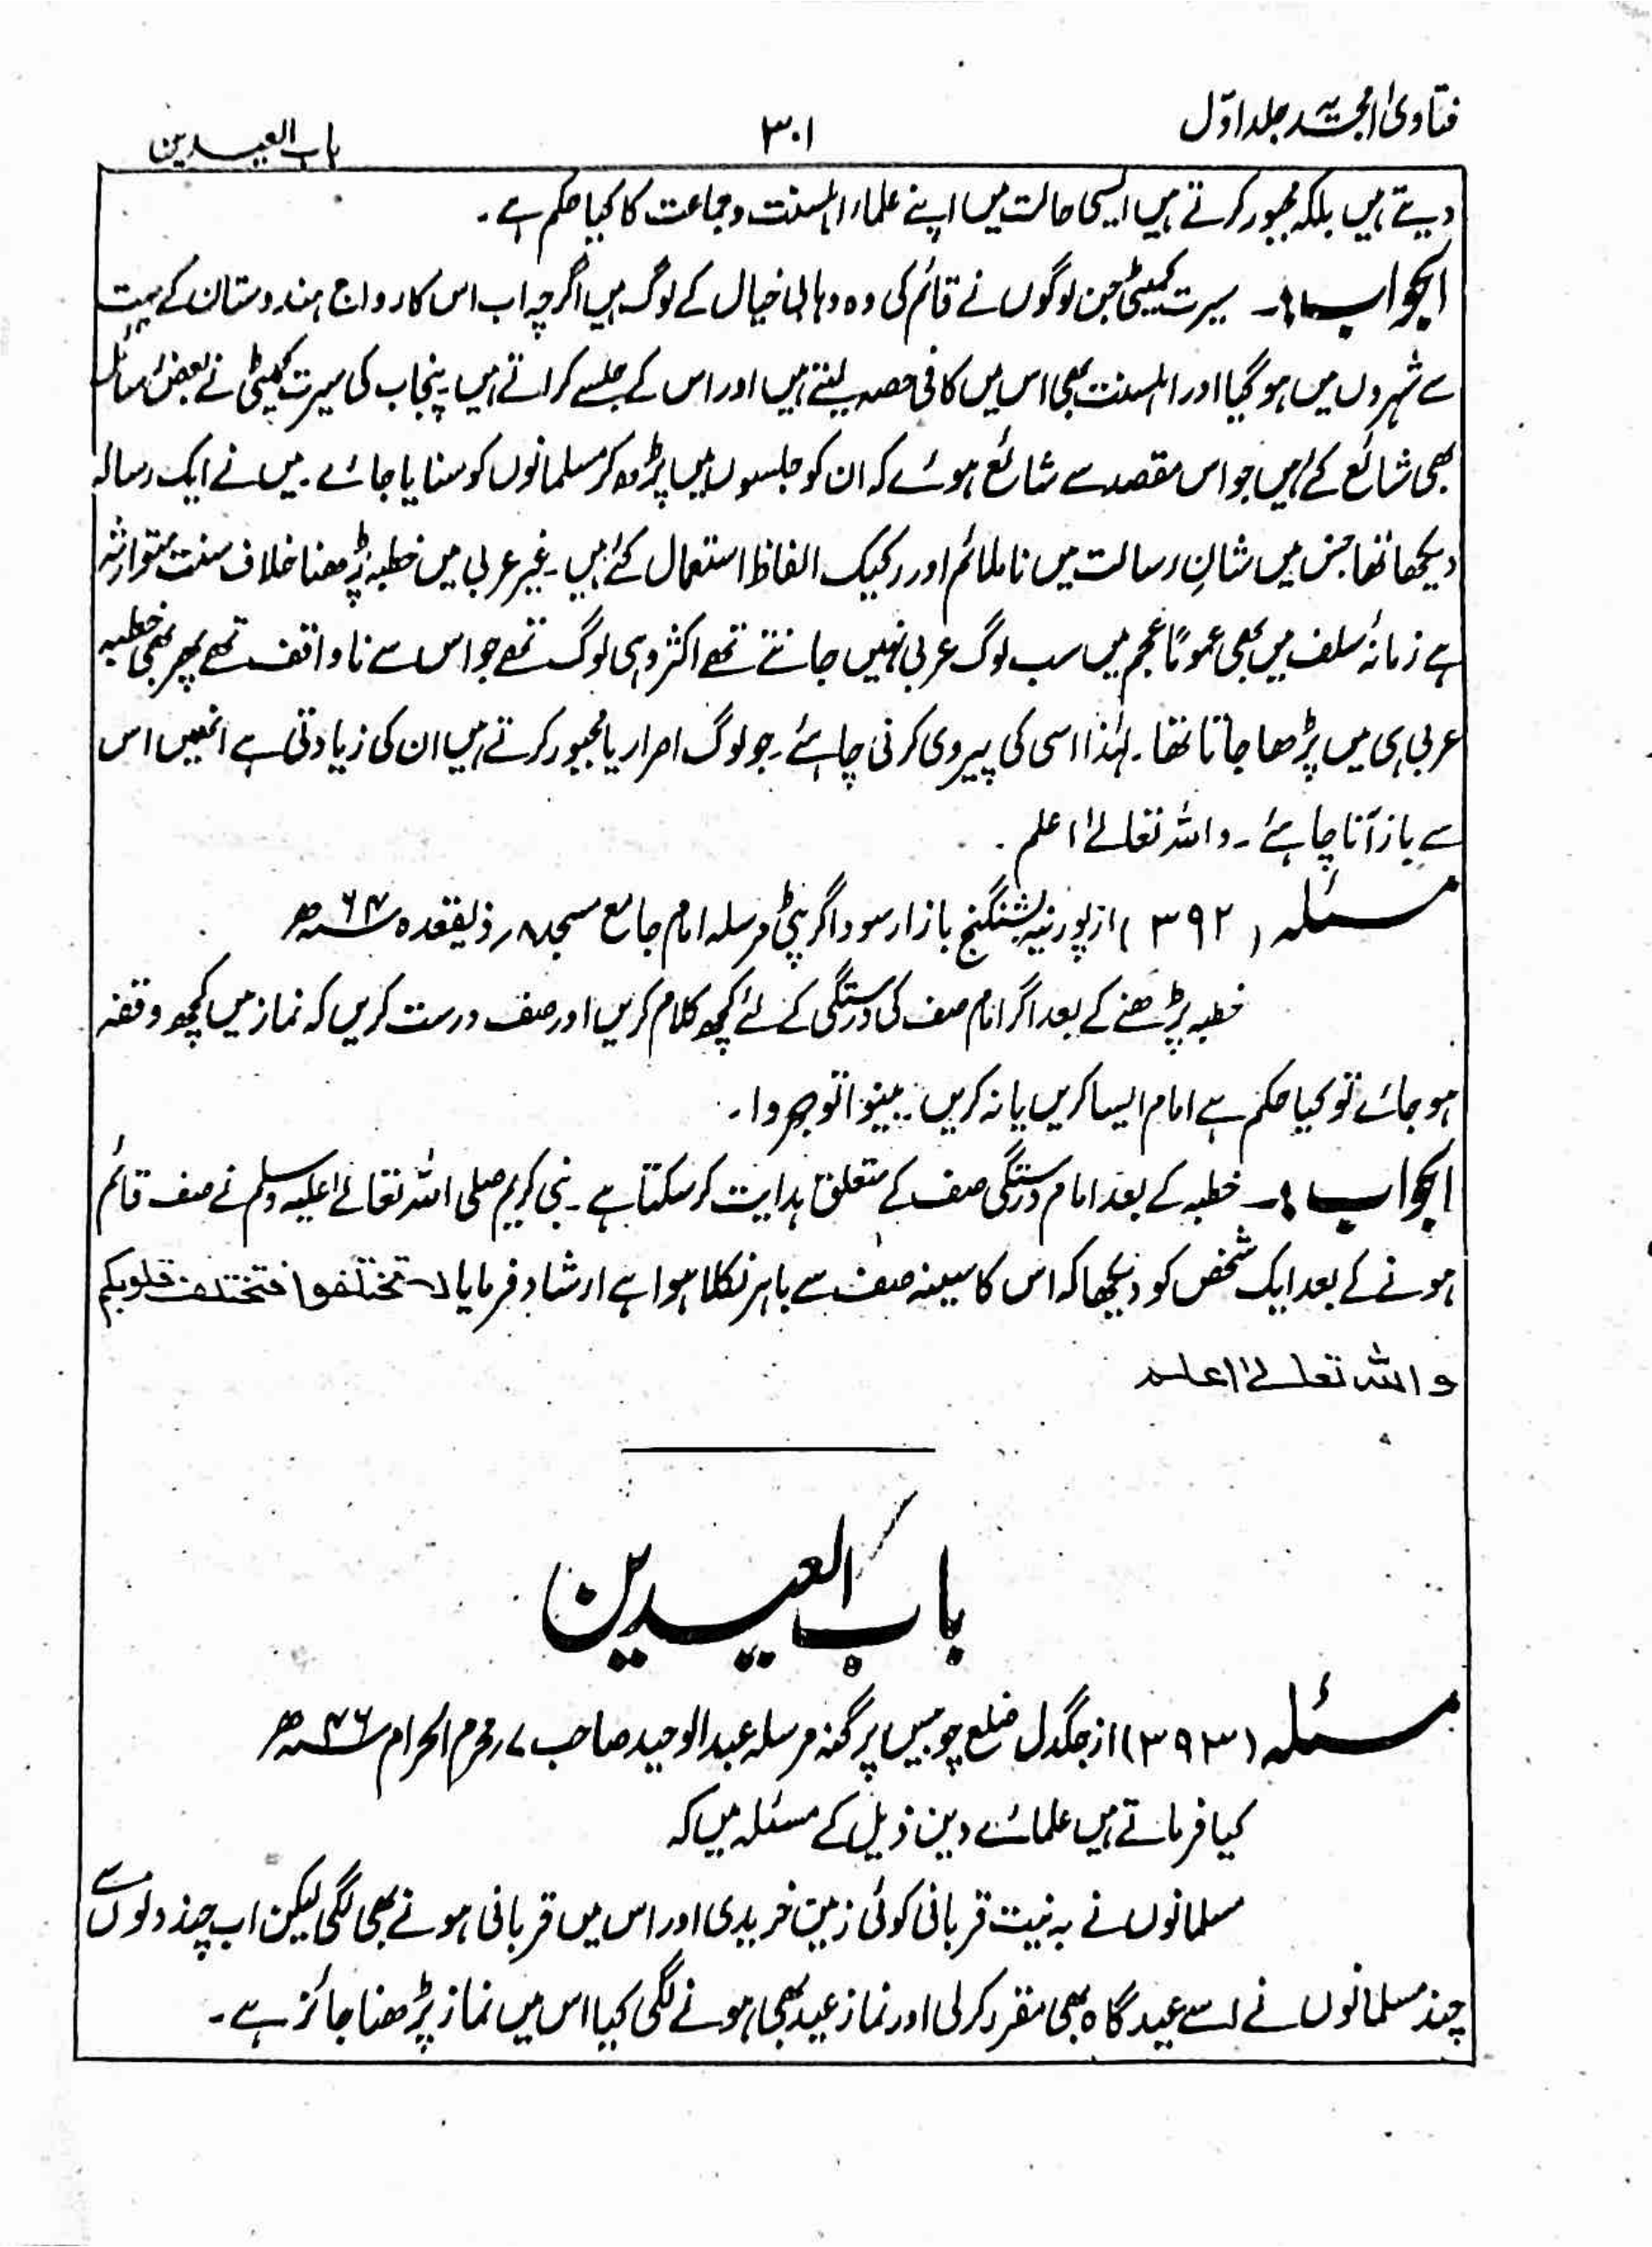 فتاویٰ امجدیہ جلد اوّل
۳۰۱
باب العیدین
دیتے ہیں بلکہ مجبور کرتے ہیں ایسی حالت میں اپنے علماء اہلسنت وجماعت کا کیا حکم ہے۔
الجواب :۔ سیرت کمیٹی جن لوگوں نے قائم کی وہ وہابی خیال کے لوگ ہیں اگرچہ اب اس کا رواج ہندوستان کے بہت
سے شہروں میں ہوگیا اور اہلسنت بھی اس میں کافی حصہ لیتے ہیں اور اس کے جلسے کراتے ہیں۔ پنجاب کی سیرت کمیٹی نے بعض رسائل
بھی شائع کئے ہیں جو اس مقصد سے شائع ہوئے کہ ان کو جلسوں میں پڑھ کر مسلمانوں کو سنایا جائے۔ میں نے ایک رسالہ
دیکھا تھا جس میں شانِ رسالت میں ناملائم اور رکیک الفاظ استعمال کئے ہیں۔ غیر عربی میں خطبہ پڑھنا خلاف سنت متوارثہ
ہے زمانۂ سلف میں بھی عموماً عجم میں سب لوگ عربی نہیں جانتے تھے اکثر وہی لوگ تھے جو اس سے ناواقف تھے پھر بھی خطبہ
عربی ہی میں پڑھا جاتا تھا۔ لہٰذا اسی کی پیروی کرنی چاہئے۔ جو لوگ اصرار یا مجبور کرتے ہیں ان کی زیادتی ہے انھیں اس
سے باز آنا چاہئے۔ واللہ تعالےٰ اعلم۔
مسئلہ (۳۹۲) از پورنیہ کشنگنج بازار سوداگر پٹی مرسلہ امام جامع مسجد ۸؍ ذیقعدہ ۶۴ھ
خطبہ پڑھنے کے بعد اگر امام صف کی درستگی کے لئے کچھ کلام کریں اور صف درست کریں کہ نماز میں کچھ وقفہ
ہو جائے تو کیا حکم ہے امام ایسا کریں یا نہ کریں۔ بینوا توجروا۔
الجواب :۔ خطبہ کے بعد امام درستگی صف کے متعلق ہدایت کرسکتا ہے۔ نبی کریم صلی اللہ تعالےٰ علیہ وسلم نے صف قائم
ہونے کے بعد ایک شخص کو دیکھا کہ اس کا سینہ صف سے باہر نکلا ہوا ہے ارشاد فرمایا لا تختلفوا فتختلف قلوبکم
واللہ تعالےٰ اعلم
باب العیدین
مسئلہ (۳۹۳) از جگدل ضلع چوبیس پرگنہ مرسلہ عبدالوحید صاحب ۷؍ محرم الحرام ۴۶ھ
کیا فرماتے ہیں علمائے دین ذیل کے مسئلہ میں کہ
مسلمانوں نے بہ نیت قربانی کوئی زمین خریدی اور اس میں قربانی ہونے بھی لگی لیکن اب چند دنوں سے
چند مسلمانوں نے اسے عیدگاہ بھی مقرر کرلی اور نماز عید بھی ہونے لگی کیا اس میں نماز پڑھنا جائز ہے۔